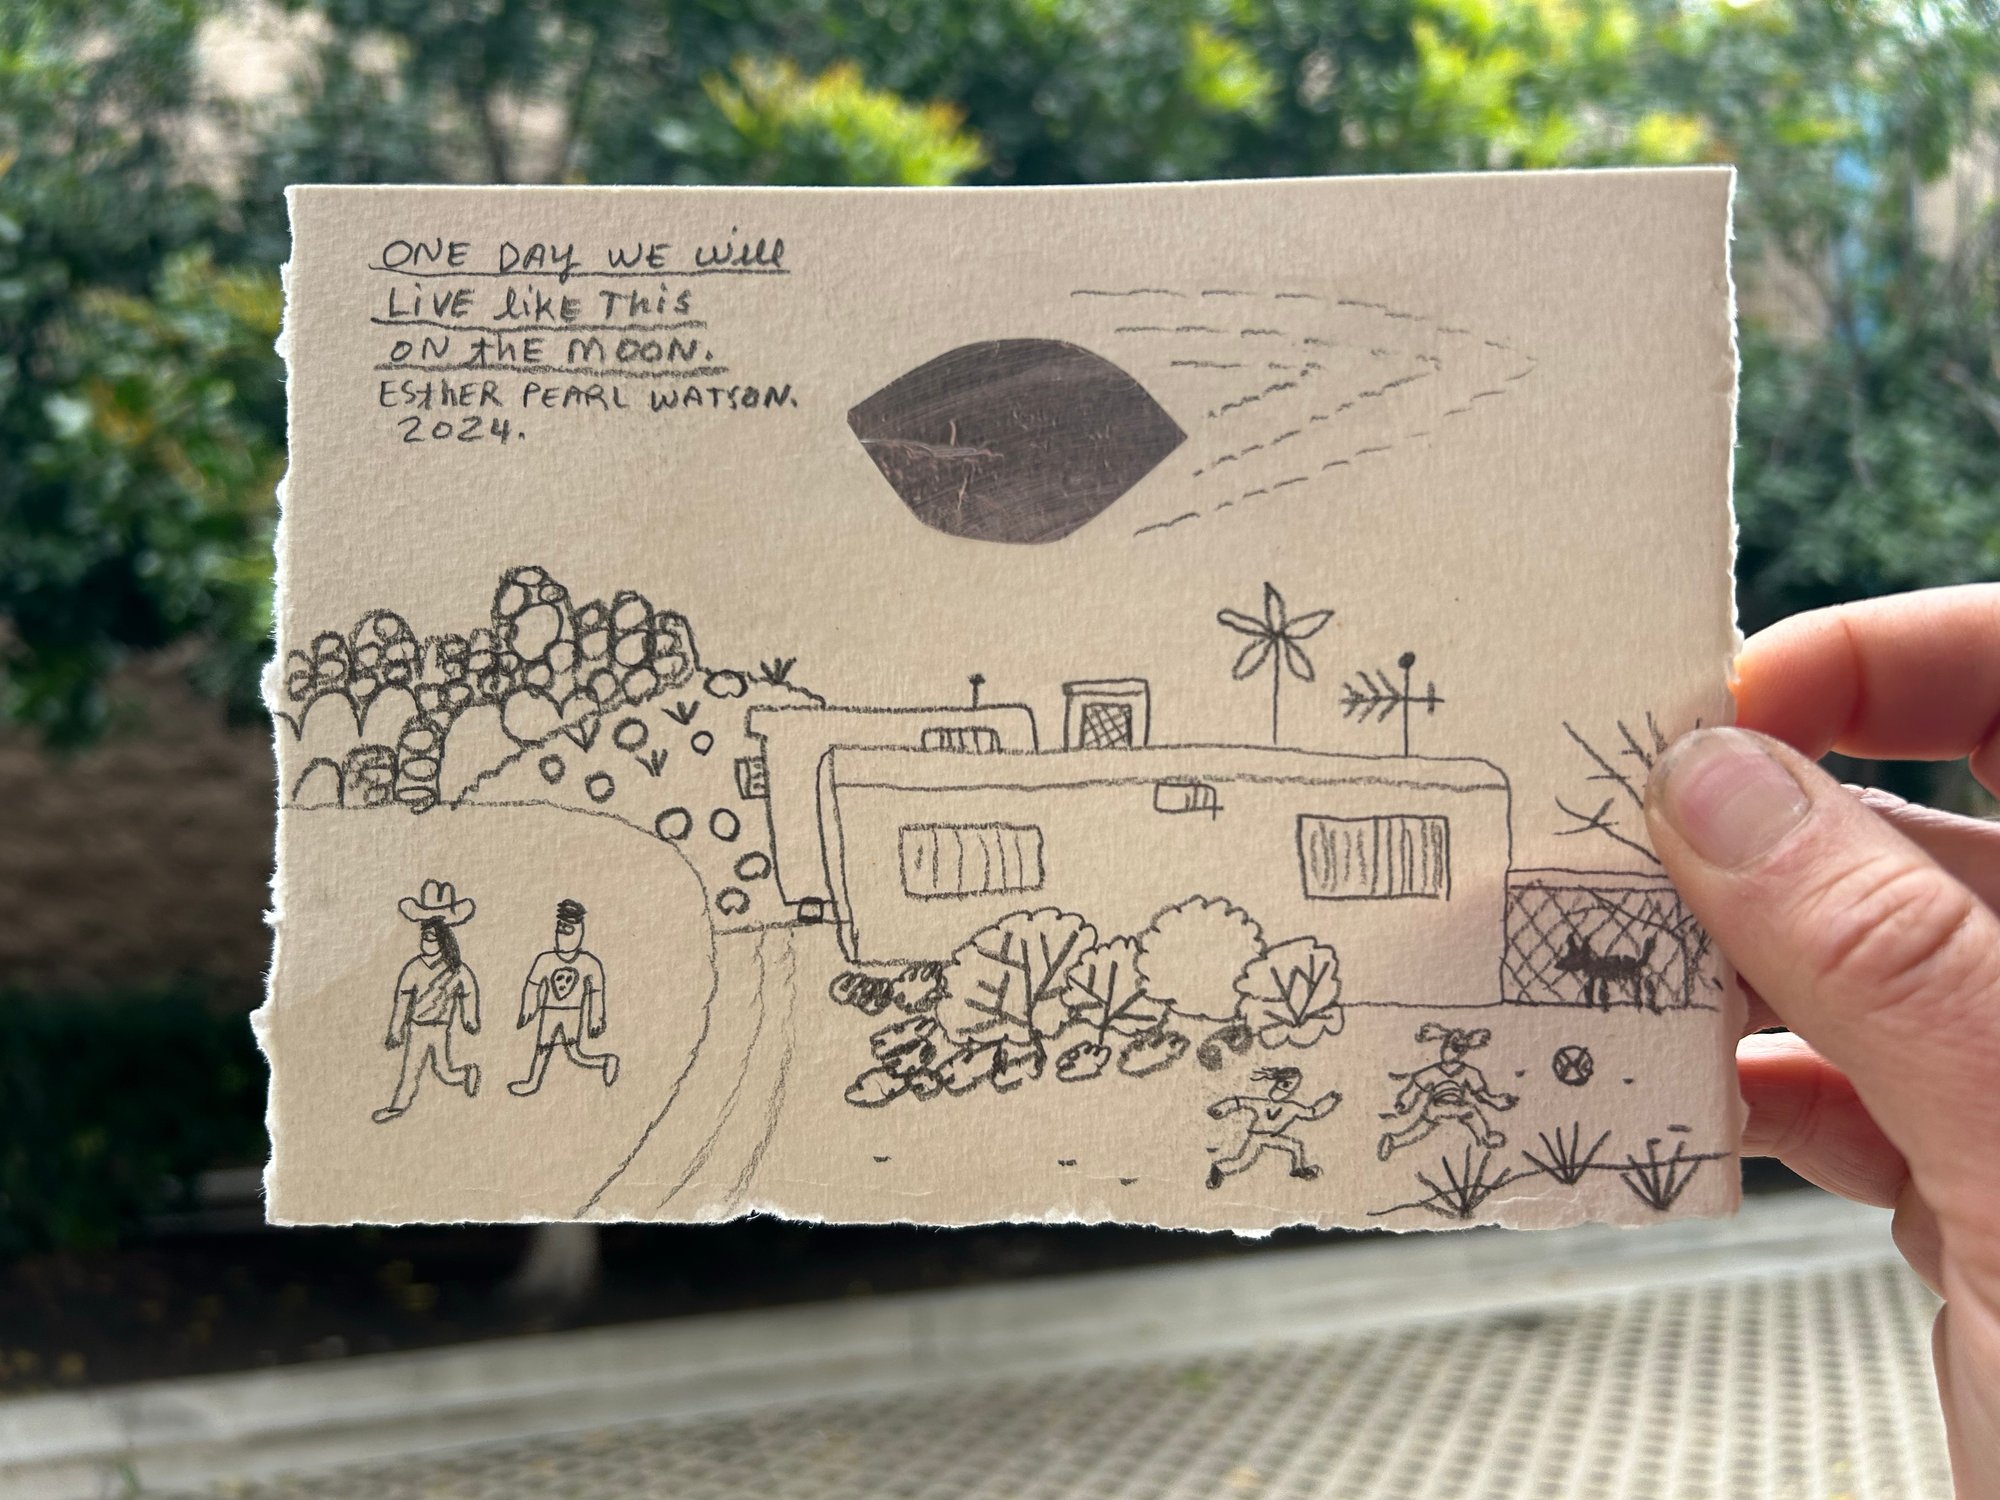 ONE DAY WE will
LiVE likE This
ON thE MOON.
ESthER PEARL WATSON.
2024.